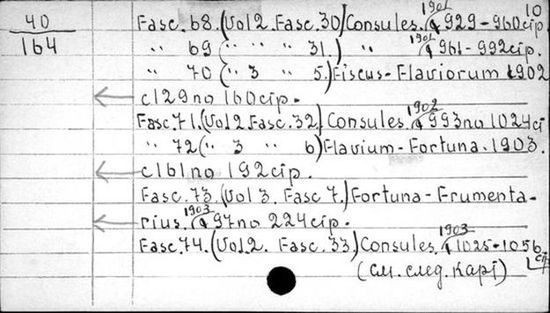 10
40
164
Fasc. 68. (Vol 2. Fasc. 30) Consules. 1901 с 929-960 стр.
" 69 (" " " 31.) " 1901 с 961-992 стр.
" 70 (" 3 " 5.) Fiscus-Flaviorum 1902
с 129 по 160 стр.
Fasc. 71. (Vol 2 Fasc. 32) Consules. 1902 с 993 по 1024 ст
" 72 (" 3 " 6) Flavium-Fortuna. 1903.
с 161 по 192 стр.
Fasc. 73. (Vol 3. Fasc 7.) Fortuna-Frumenta-
rius. 1903 с 97 по 224 стр.
Fasc. 74. (Vol. 2. Fasc. 33) Consules. 1903 с 1025-1056 стр
(см. след. карт)